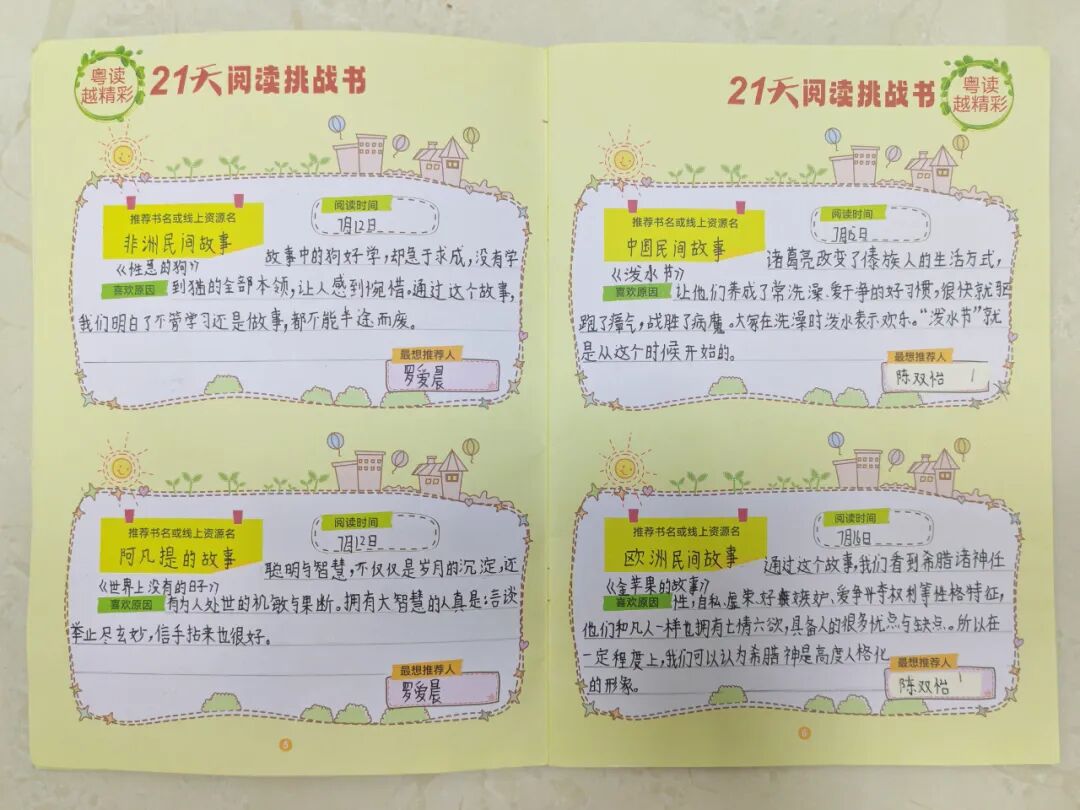 粤读
越精彩
21天阅读挑战书
推荐书名或线上资源名
阅读时间
7月12日
非洲民间故事
《性急的狗》
故事中的狗好学，却急于求成，没有学
喜欢原因
到猫的全部本领，让人感到惋惜。通过这个故事，
我们明白了不管学习还是做事，都不能半途而废。
最想推荐人
罗爱晨
推荐书名或线上资源名
阅读时间
7月12日
阿凡提的故事
《世界上没有的日子》
聪明与智慧，不仅仅是岁月的沉淀，还
喜欢原因
有为人处世的机敏与果断。拥有大智慧的人真是：言谈
举止尽玄妙，信手拈来也很好。
最想推荐人
罗爱晨
5
21天阅读挑战书
粤读
越精彩
推荐书名或线上资源名
阅读时间
7月15日
中国民间故事
《泼水节》
诸葛亮改变了傣族人的生活方式，
喜欢原因
让他们养成了常洗澡、爱干净的好习惯，很快就驱
跑了瘴气，战胜了病魔。大家在洗澡时泼水表示欢乐。“泼水节”就
是从这个时候开始的。
最想推荐人
陈双怡
推荐书名或线上资源名
阅读时间
7月16日
欧洲民间故事
《金苹果的故事》
通过这个故事，我们看到希腊诸神任
喜欢原因
性，自私、虚荣、好嫉妒、爱争夺权利等性格特征，
他们和凡人一样也拥有七情六欲，具备人的很多优点与缺点。所以在
一定程度上，我们可以认为希腊神是高度人格化
的形象。
最想推荐人
陈双怡
6